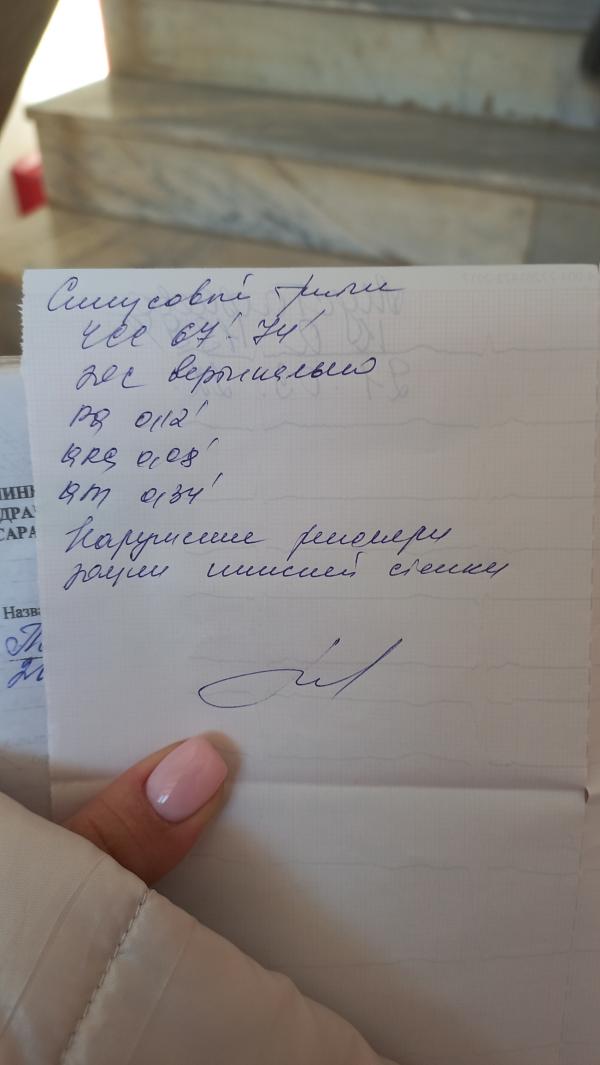 Синусовый ритм
ЧСС 67' 74'
ЭОС вертикально
PQ 0,12'
QRS 0,08'
QT 0,34'
Нарушение реполяри
зации нижней стенки
МИНИ
ДРА
САРА
Назва